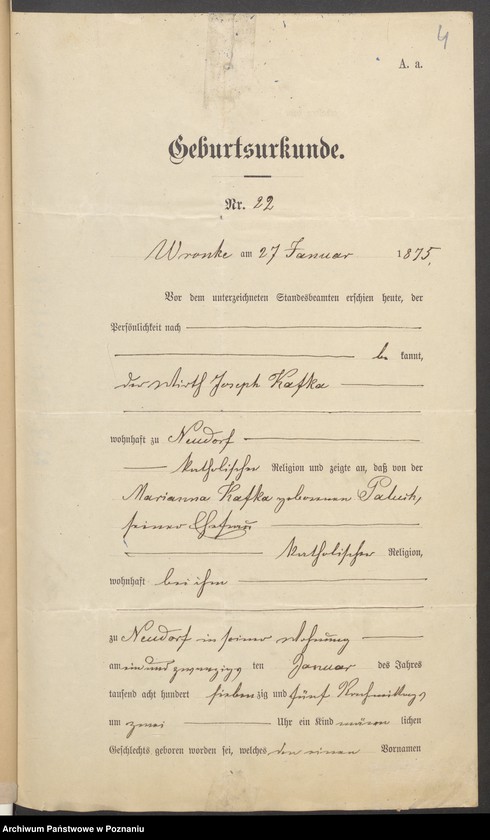 4
A. a.
Geburtsurkunde.
Nr. 22
Wronke am 27 Januar 1875.
Vor dem unterzeichneten Standesbeamten erschien heute, der
Persönlichkeit nach
be kannt,
der Wirth Joseph Kafka
wohnhaft zu Neudorf
katholischer Religion und zeigte an, daß von der
Marianna Kafka geborenen
seiner Ehefrau
katholischer Religion,
wohnhaft bei ihm
zu Neudorf in seiner Wohnung
am ein und zwanzig ten Januar des Jahres
tausend acht hundert sieben zig und fünf Nachmittags
um zwei Uhr ein Kind männ lichen
Geschlechts geboren worden sei, welches den einen Vornamen
Archiwum Państwowe w Poznaniu